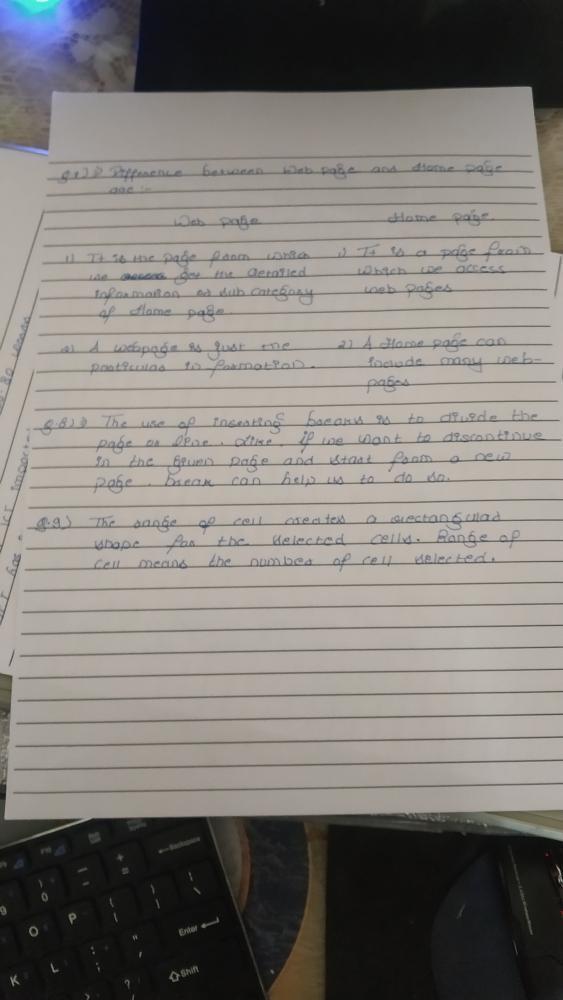 Difference between Web page and Home page
are :-
Web page
Home page.
1) It is the page from which
we get the detailed
information or sub category
of Home page.
1) It is a page from
which we access
web pages
2) A webpage is just the
particular information.
2) A Home page can
include many web-
pages
Q.8) The use of inserting breaks is to divide the
page or line. if we want to discontinue
in the given page and start from a new
page. break can help us to do so.
Q.9) The range of cell creates a rectangular
shape for the selected cells. Range of
cell means the number of cell selected.
Backspace
Enter
Shift
O
P
K
L